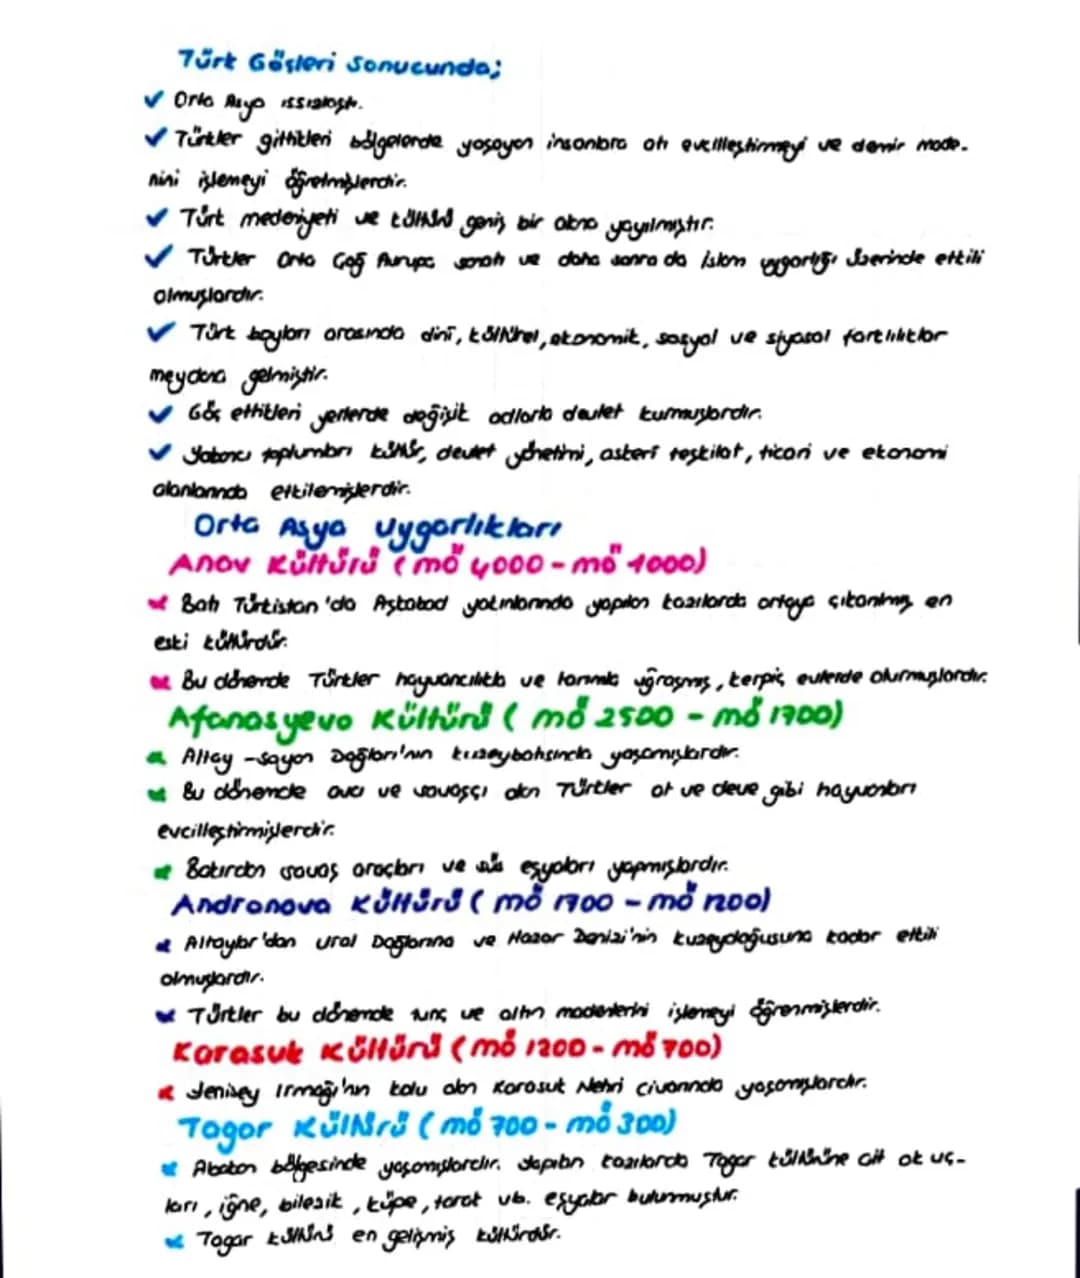 Türk Göçleri Sonucunda;
Orta Asya ıssızlaştı.
Türkler gittikleri bölgelerde yaşayan insanlara atı evcilleştirmeyi ve demir made-
nini işlemeyi öğretmişlerdir.
Türk medeniyeti ve kültürü geniş bir alana yayılmıştır.
Türkler Orta Çağ Avrupa sanatı ve daha sonra da İslam uygarlığı üzerinde etkili
olmuşlardır.
Türk boyları arasında dinî, kültürel, ekonomik, sosyal ve siyasal farklılıklar
meydana gelmiştir.
Göç ettikleri yerlerde değişik adlarla devlet kurmuşlardır.
Yabancı toplumları kültür, devlet yönetimi, askerî teşkilat, ticari ve ekonomi
alanlarında etkilemişlerdir.
Orta Asya Uygarlıkları
Anav Kültürü (MÖ 4000 - MÖ 1000)
Batı Türkistan'da Aşkabad yakınlarında yapılan kazılarda ortaya çıkarılmış en
eski kültürdür.
Bu dönemde Türkler hayvancılıkla ve tarımla uğraşmış, kerpiç evlerde oturmuşlardır.
Afanasyevo Kültürü (MÖ 2500 - MÖ 1700)
Altay - Sayan Dağları'nın kuzeybatısında yaşamışlardır.
Bu dönemde avcı ve savaşçı olan Türkler at ve deve gibi hayvanları
evcilleştirmişlerdir.
Bakırdan savaş araçları ve süs eşyaları yapmışlardır.
Andronova Kültürü (MÖ 1700 - MÖ 1200)
Altaylar'dan Ural Dağlarına ve Hazar Denizi'nin kuzeydoğusuna kadar etkili
olmuşlardır.
Türkler bu dönemde tunç ve altın madenlerini işlemeyi öğrenmişlerdir.
Karasuk Kültürü (MÖ 1200 - MÖ 700)
Yenisey Irmağı'nın kolu olan Karasuk Nehri civarında yaşamışlardır.
Tagar Kültürü (MÖ 700 - MÖ 300)
Abakan bölgesinde yaşamışlardır. Yapılan kazılarda Tagar kültürüne ait ok uç-
ları, iğne, bilezik, küpe, tarak vb. eşyalar bulunmuştur.
Tagar kültürü en gelişmiş kültürdür.